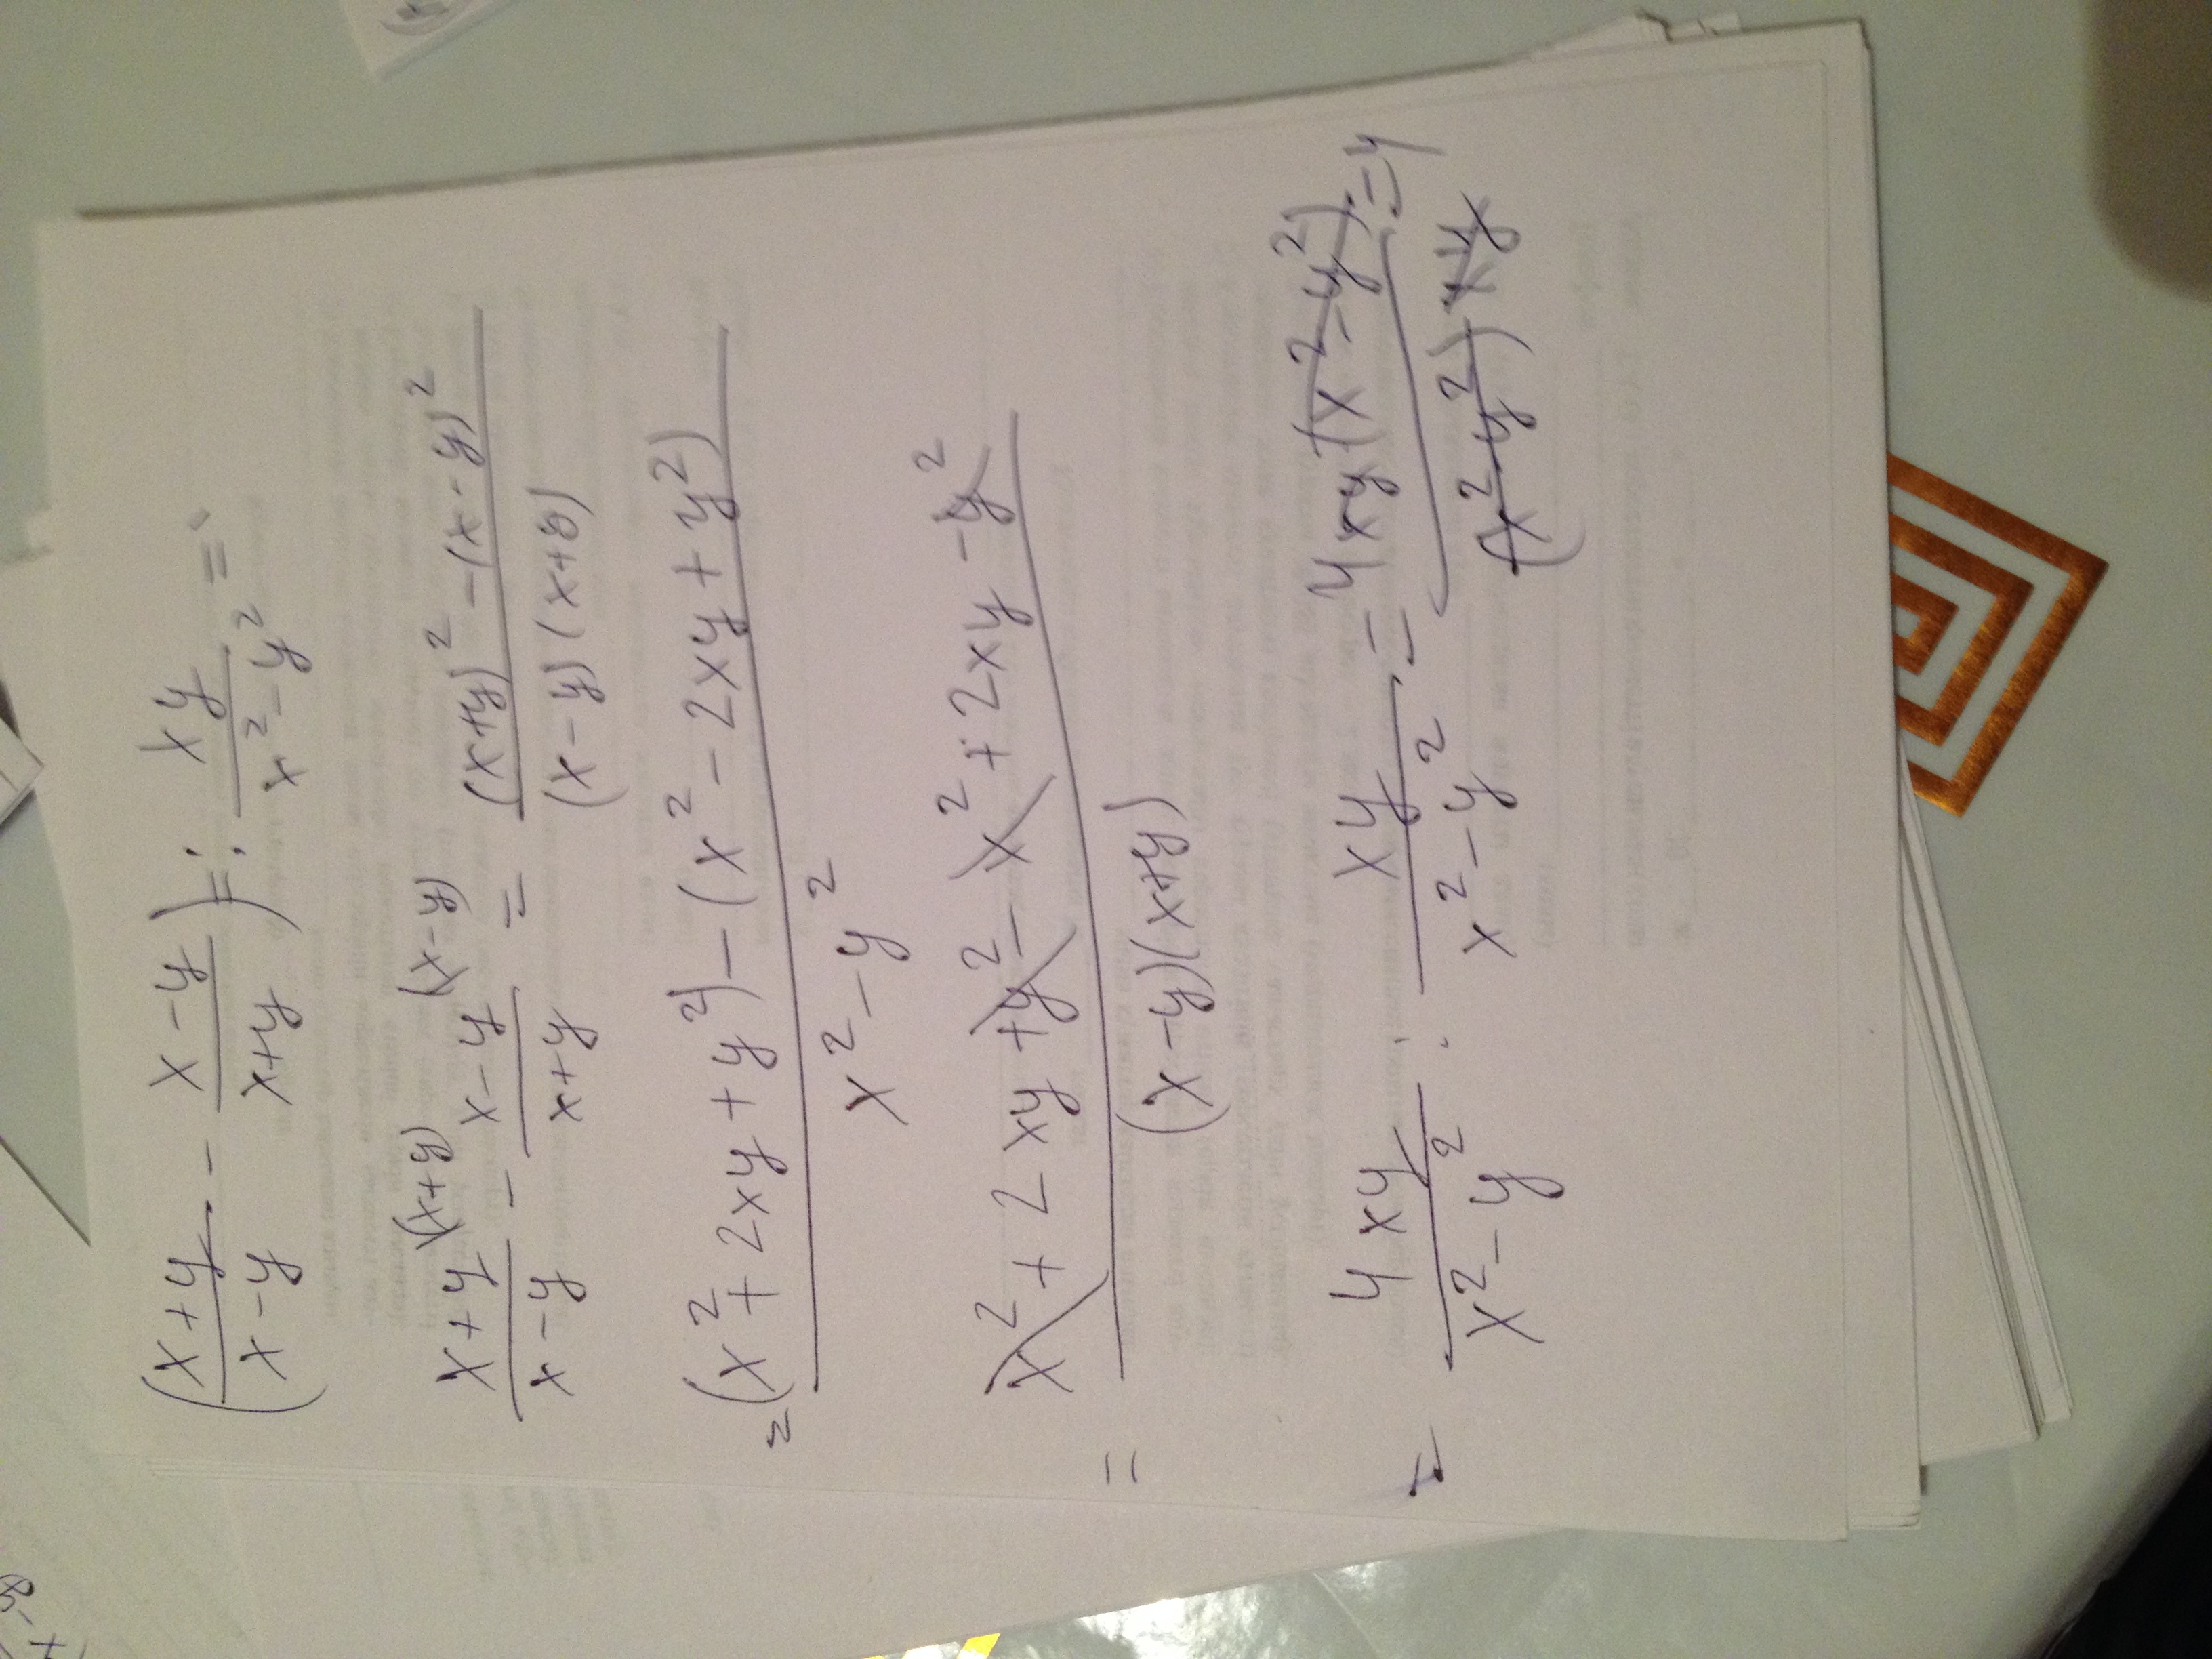 (x+y/x-y - x-y/x+y) = : xy/x²-y² =
x+y/x-y (x+y) - x-y/x+y (x-y) = (x+y)² - (x-y)² / (x-y)(x+y)
= (x²+2xy+y²) - (x²-2xy+y²) / x²-y²
= x²+2xy+y²-x²+2xy-y² / (x-y)(x+y)
= 4xy/x²-y² : xy/x²-y² = 4xy(x²-y²)/(x²-y²)xy = 4